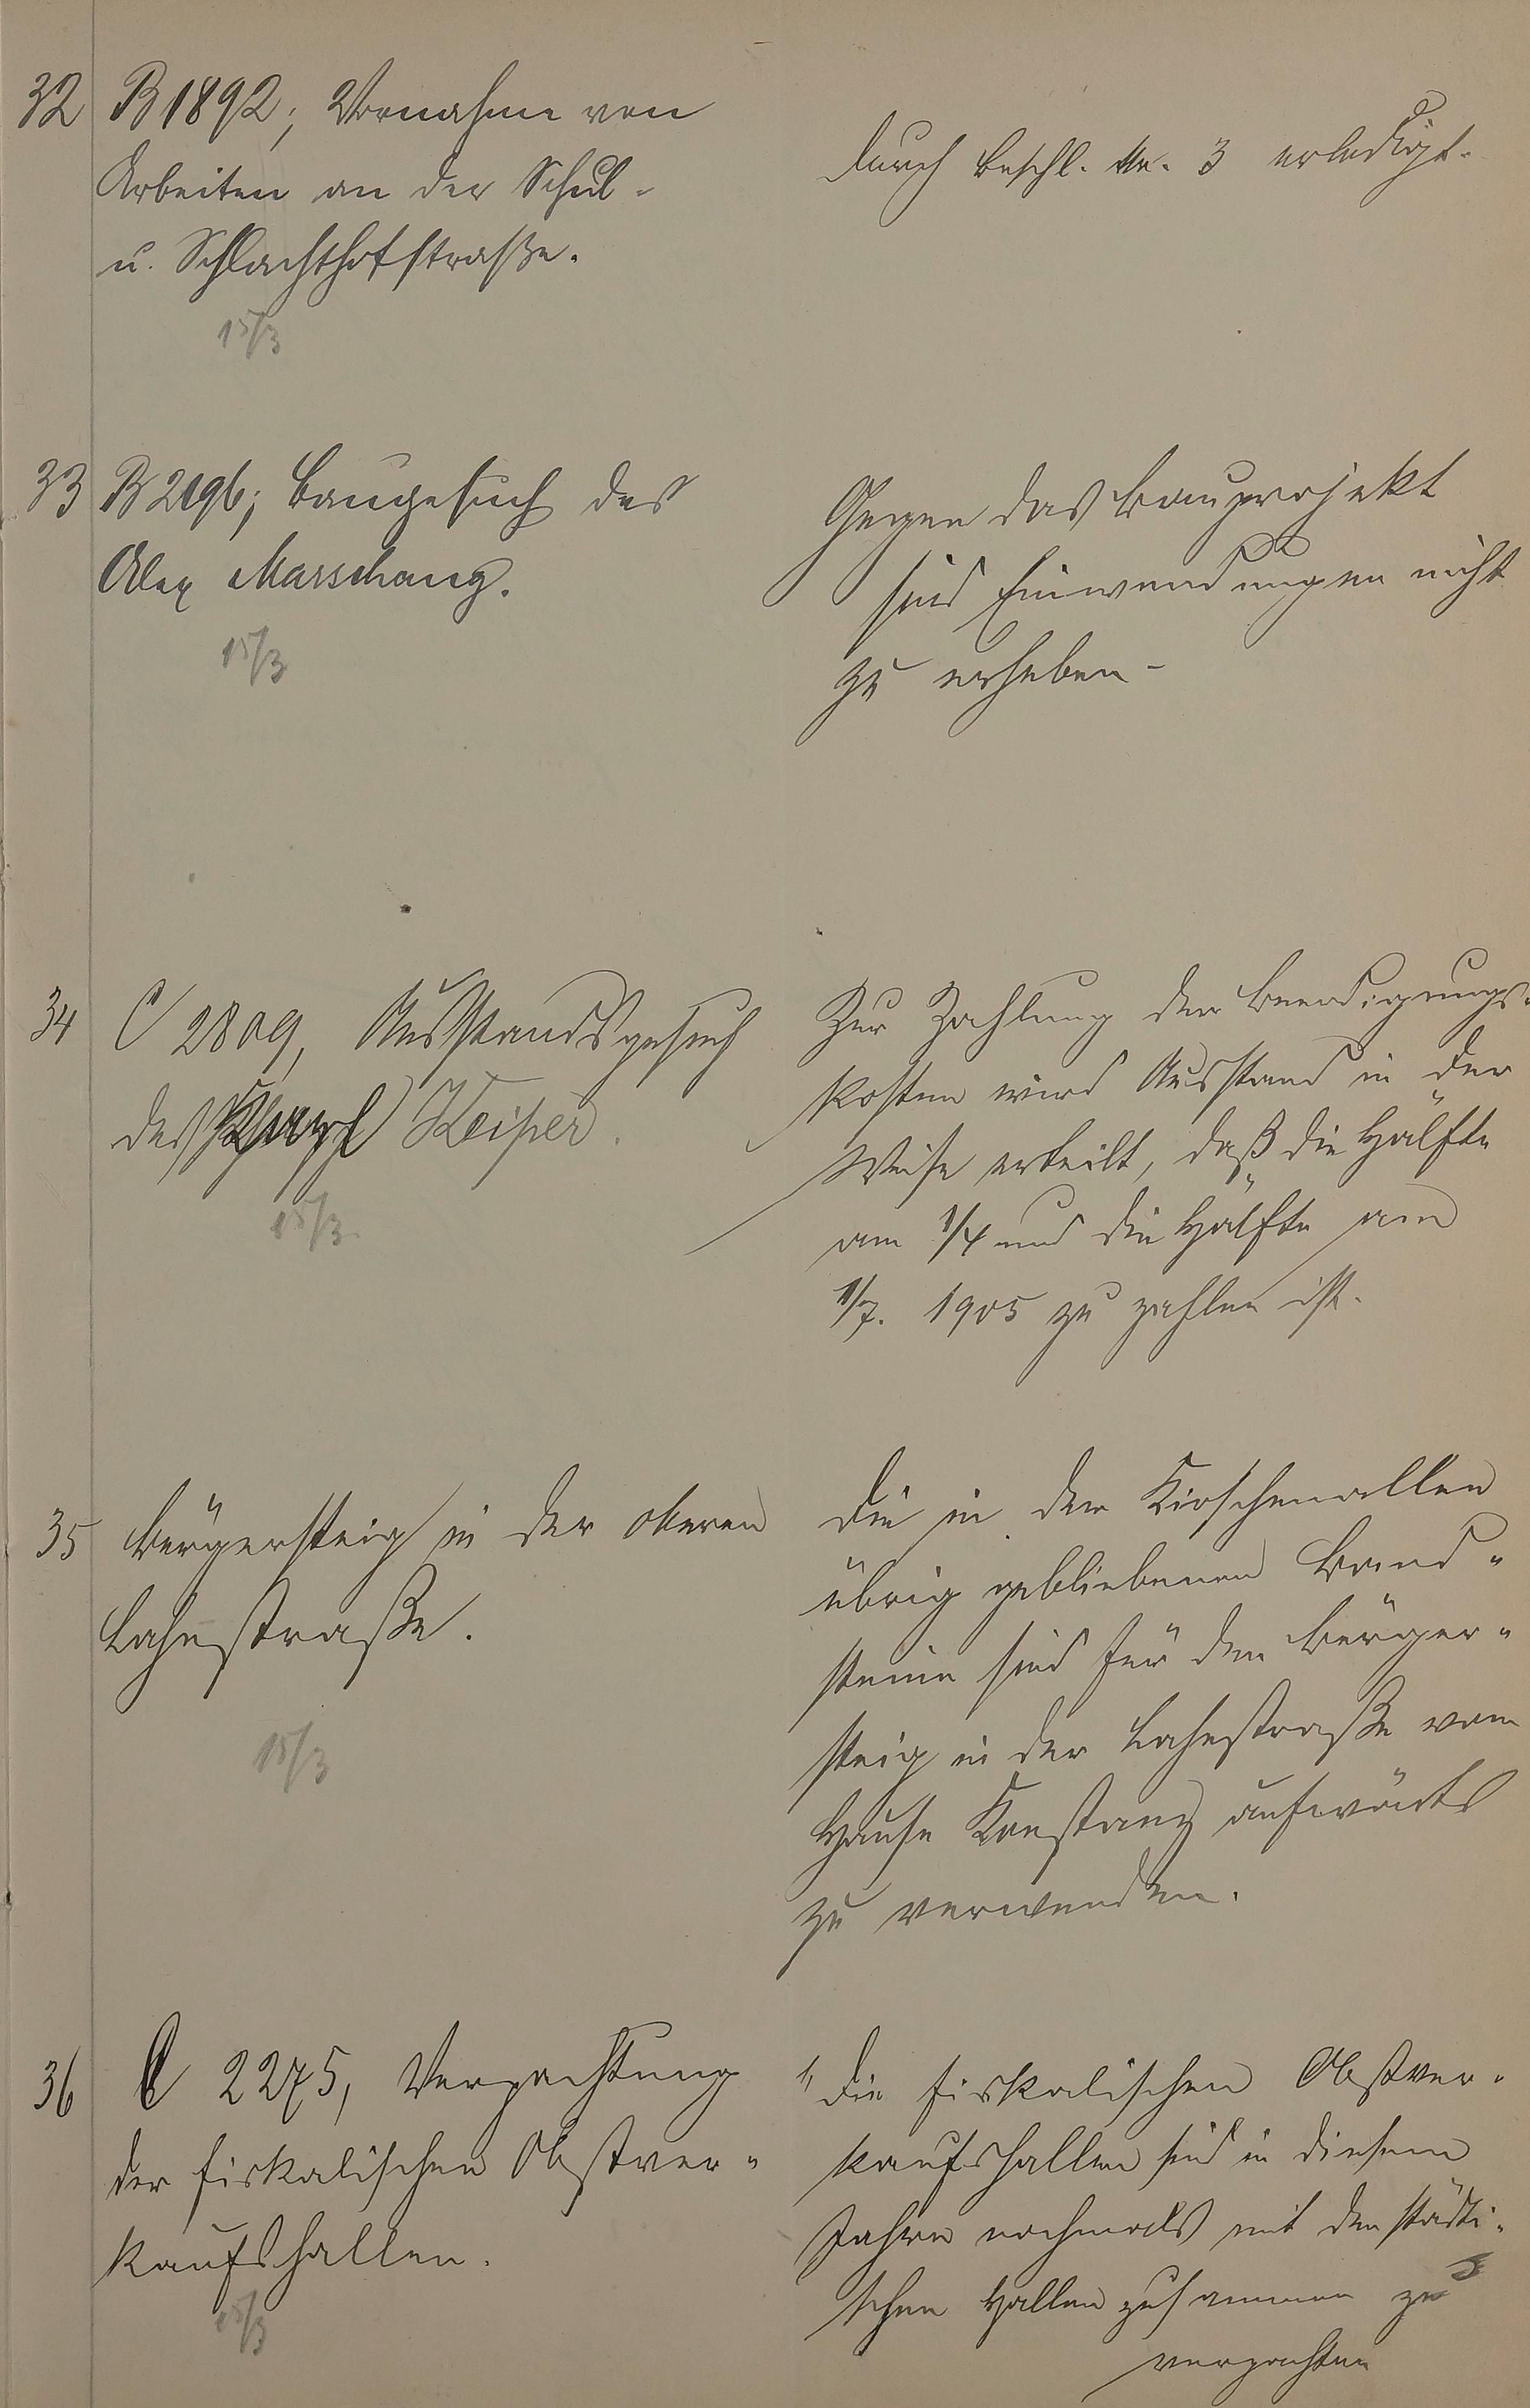 32 B 1892; Vornahme von
Arbeiten an der Schul-
u. Schlachthofstraße.
15/3
Durch Beschl. Nr. 3 erledigt.
33 B 2196; Baugesuch des
Alex Marschang.
15/3
Gegen das Bauprojekt
sind Einwendungen nicht
zu erheben-
34 C 2809, Ausstandsgesuch
des Karl Keiper.
15/3.
Zur Zahlung der Beerdigungs-
kosten wird Ausstand in der
Weise erteilt, daß die Hälfte
am 1/4 und die Hälfte am
1/7. 1905 zu zahlen ist.
35 Bürgersteig in der oberen
Lahnstraße.
15/3
Die in der Kirschenallee
übrig gebliebenen Band-
steine sind für den Bürger-
steig in der Lahnstraße vom
Hause Konstanz aufwärts
zu verwenden.
36 C 2275, Verpachtung
der fiskalischen Obstver-
kaufshallen.
15/3
1, Die fiskalischen Obstver-
kaufshallen sind in diesem
Jahre nochmals mit den städti-
schen Hallen zusammen zu
verpachten